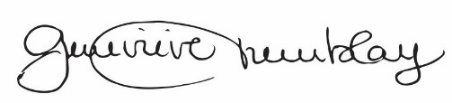 Geneviève Tremblay